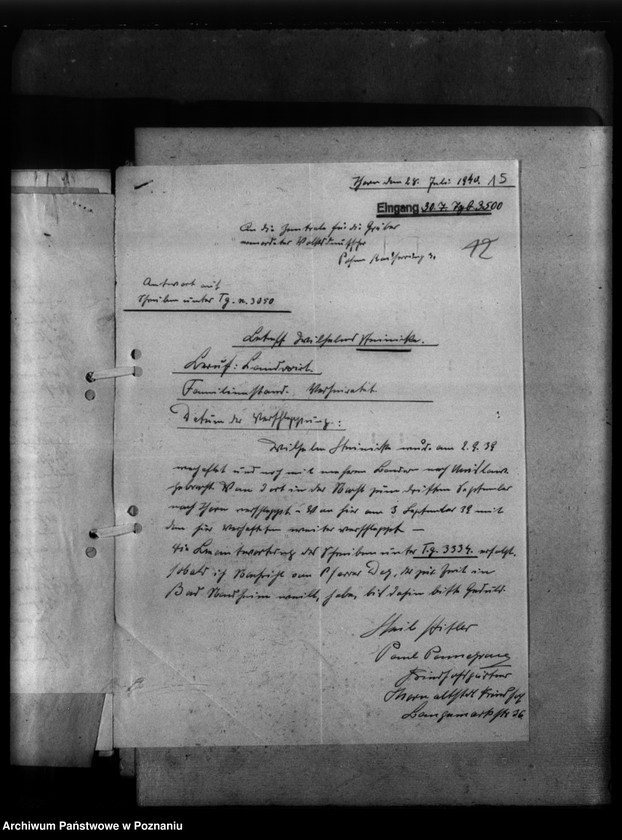 Thorn den 28. Juli 1940. 15
Eingang 30.7. Tgb. 3500
An die Zentrale für die Gräber
ermordeter Volksdeutscher
Posen
42
Antwort auf
Schreiben unter Tg. n. 3050
Betreff Wilhelm Steinicke.
Beruf: Landwirt.
Familienstand. Verheiratet
Datum der Verschleppung:
Wilhelm Steinicke wurde am 2.9.39
verhaftet und noch mit mehreren nach
gebracht. Von dort in der Nacht zum dritten September
nach Thorn verschleppt u Von hier am 3 September 39 mit
den hier Verhafteten weiter verschleppt —
Die Beantwortung des Schreiben unter Tg. 3334. erfolgt.
sobald ich Nachricht vom Pfarrer der zur Zeit in
Bad Nauheim weilt, habe, bis dahin bitte Geduld.
Heil Hitler
Paul
Friedhofsgärtner
Thorn altst. Friedhof
Langemarkstr 36
Archiwum Państwowe w Poznaniu